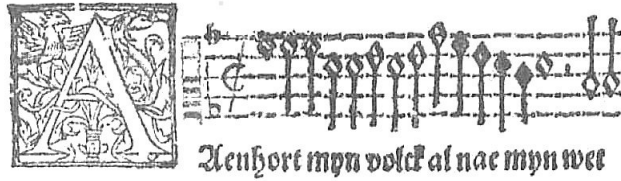 A
Aenhort myn volck al nae myn wet